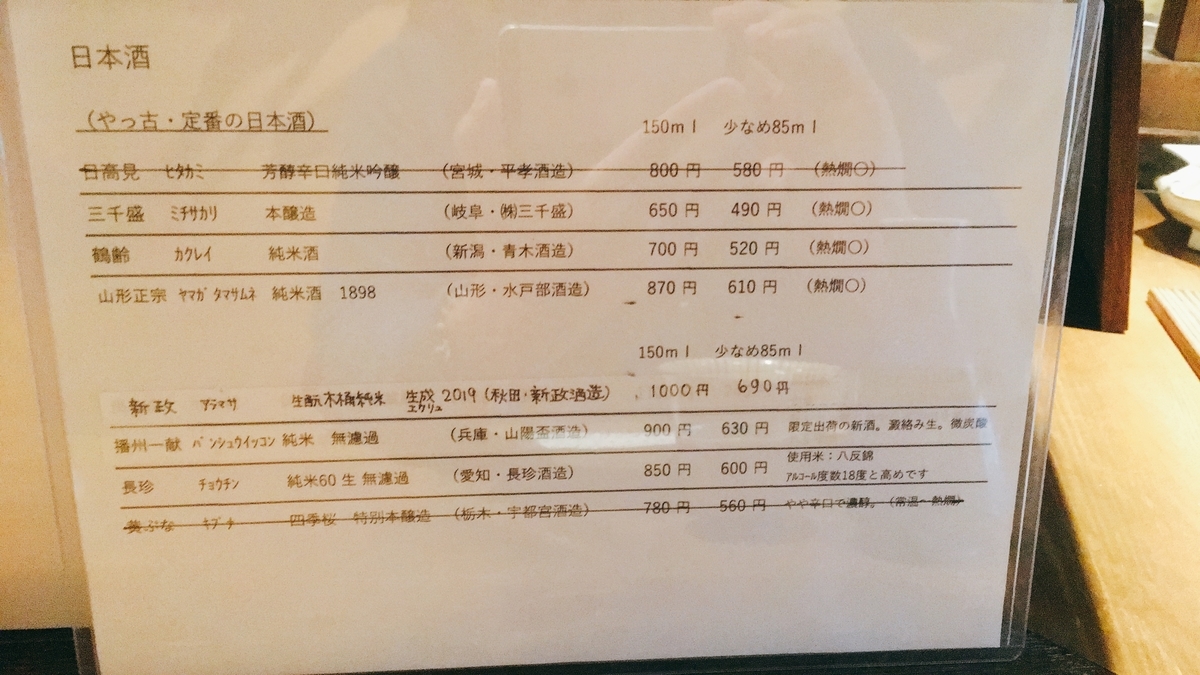 日本酒
(やっ古・定番の日本酒)
150ml 少なめ85ml
日高見 ヒタカミ 芳醇辛口純米吟醸 (宮城・平孝酒造) 800円 580円 (熱燗〇)
三千盛 ミチサカリ 本醸造 (岐阜・㈱三千盛) 650円 490円 (熱燗〇)
鶴齢 カクレイ 純米酒 (新潟・青木酒造) 700円 520円 (熱燗〇)
山形正宗 ヤマガタマサムネ 純米酒 1898 (山形・水戸部酒造) 870円 610円 (熱燗〇)
150ml 少なめ85ml
新政 アラマサ 生酛木桶純米 生成 2019 (秋田・新政酒造) 1000円 690円
エクリュ
播州一献 バンシュウイッコン 純米 無濾過 (兵庫・山陽盃酒造) 900円 630円 限定出荷の新酒。澱絡み生。微炭酸
使用米：八反錦
長珍 チョウチン 純米60 生 無濾過 (愛知・長珍酒造) 850円 600円 アルコール度数18度と高めです
ぶな キブナ 四季桜 特別本醸造 (栃木・宇都宮酒造) 780円 560円 やや辛口で濃醇。(常温〜熱燗)